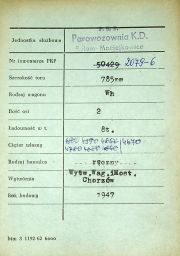 Jednostka służbowa
P.K.P.
Parowozownia K.D.
Nr inwentarza PKP 50429 2079-6
Szerokość toru 785mm
Rodzaj wagonu Wh
Ilość osi 2
Ładowność w t. 8t.
Ciężar własny
Rodzaj hamulca ręczny
Wytwórnia Wytw.Wag.iMost. Chorzów
Rok budowy 1947